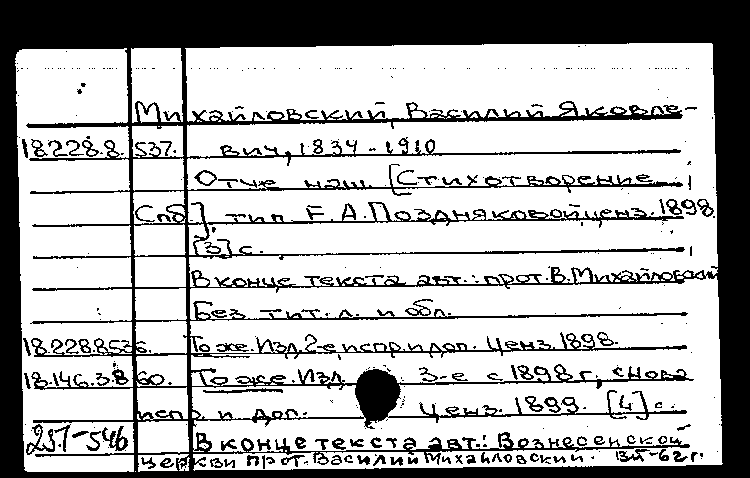 Михайловский, Василий Яковле-
18.228.8.537. вич, 1834-1910
Отче наш. [Стихотворение.
Спб]. тип. Е.А.Поздняковой ценз. 1898.
[3] с.
В конце текста авт.: прот. В. Михайловский
Без тит. л. и обл.
18.228.8.536. То же. Изд. 2-е испр. и доп. Ценз. 1898.
18.146.3.8 60. То же. Изд. 3-е с 1898 г., снова
испр. и доп. Ценз. 1899. [4] с.
257-546 В конце текста авт.: Вознесенской
церкви прот. Василий Михайловский. ВЛ-62 г.